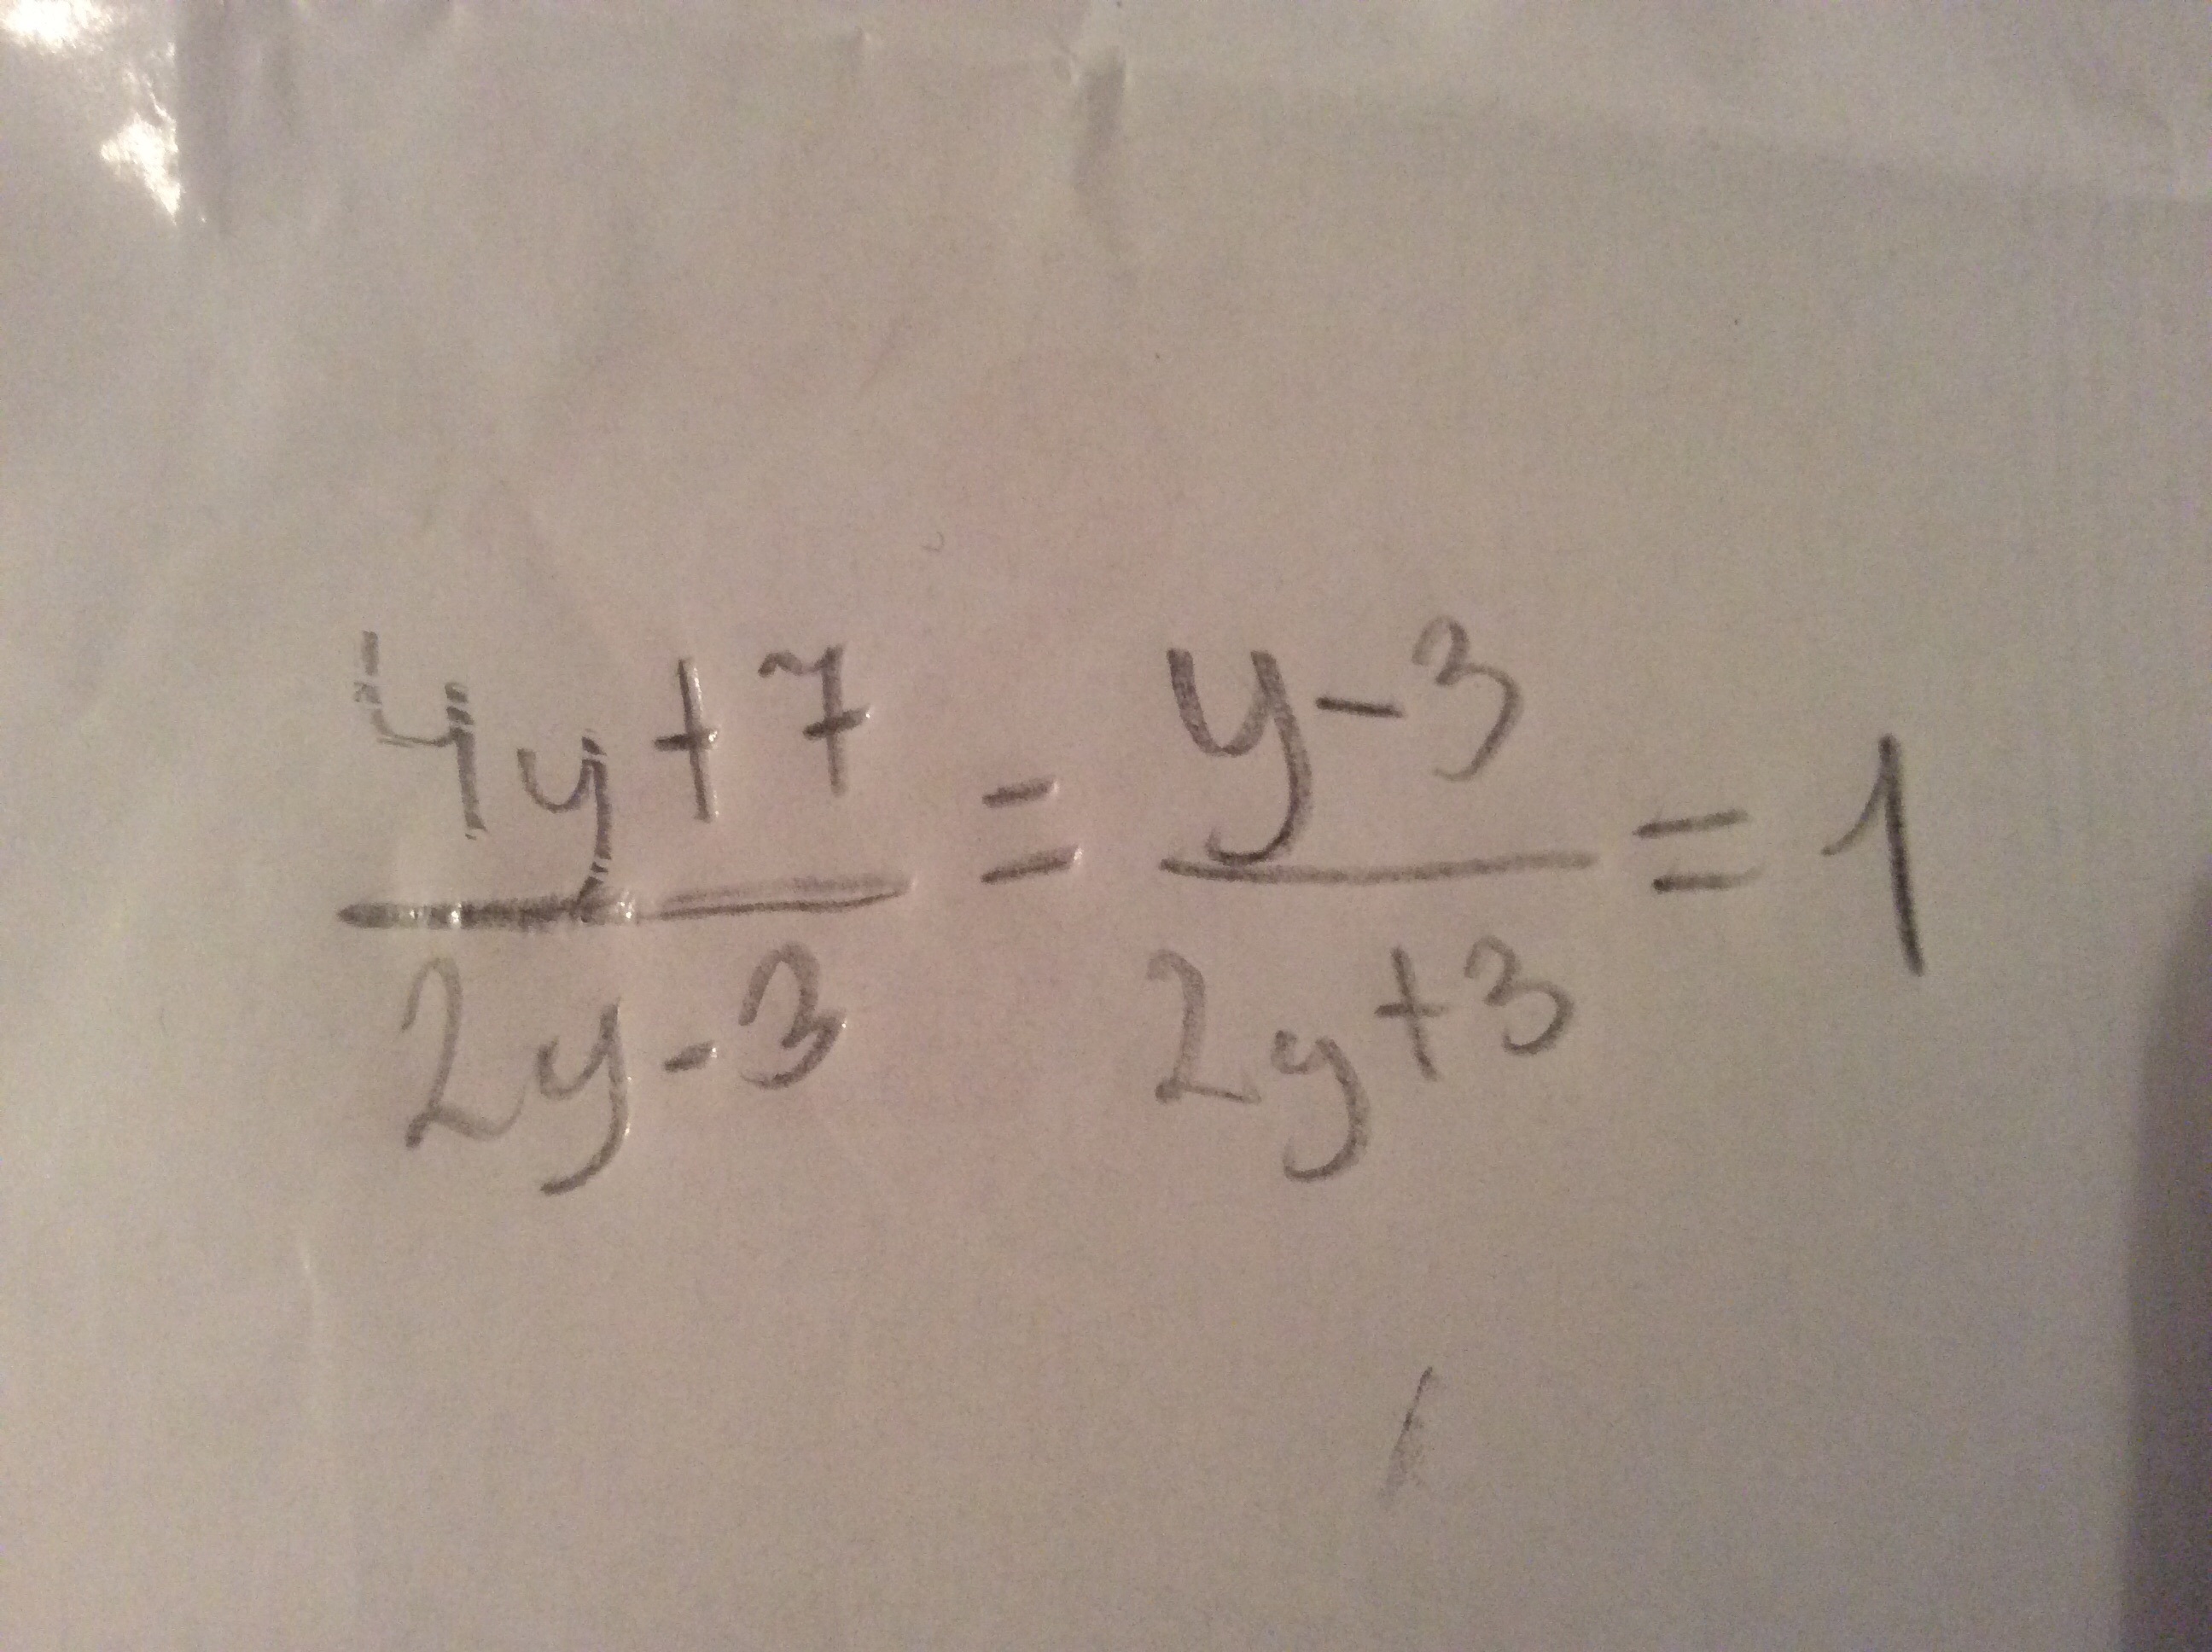 (4y+7)/(2y-3) = (y-3)/(2y+3) = 1